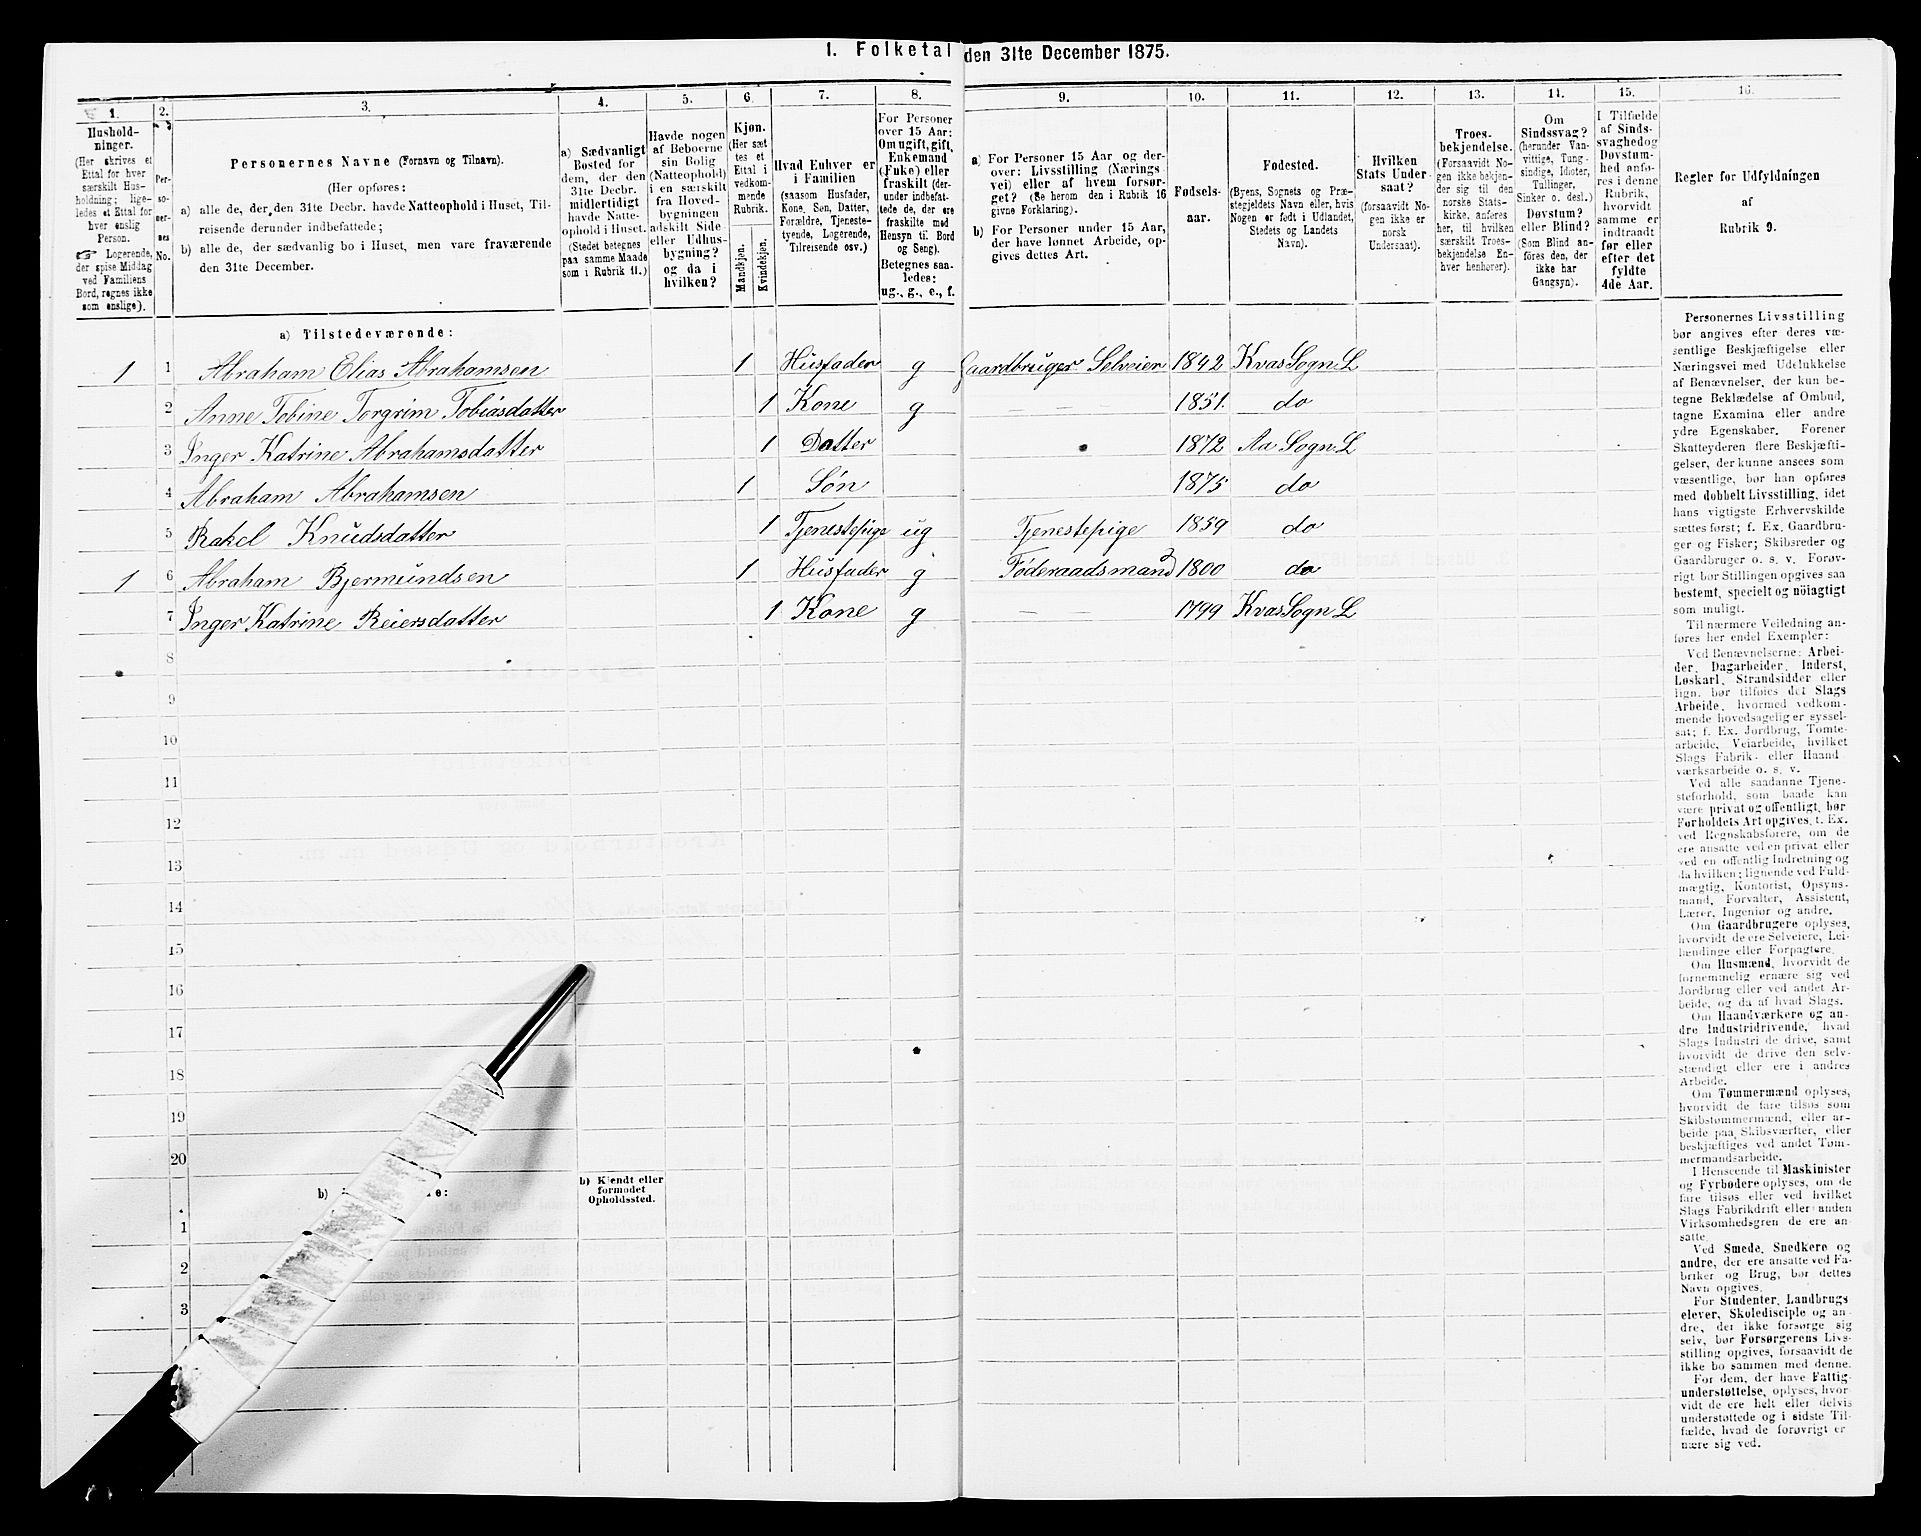 I. Folketal den 31te December 1875.
1. 2. 3. 4. 5. 6. 7. 8. 9. 10. 11. 12. 13. 14. 15. 16.
Hushold-
ninger.
(Her skrives et
Ettal for hver
særskilt Hus-
holdning; lige-
ledes et Ettal for
hver enslig
Person.
☞ Logerende,
der spise Middag
ved Familiens
Bord, regnes ikke
som enslige).
Per-
so-
ner-
nes
No.
Personernes Navne (Fornavn og Tilnavn).
(Her opføres:
a) alle de, der den 31te Decbr. havde Natteophold i Huset, Til-
reisende derunder indbefattede;
b) alle de, der sædvanlig bo i Huset, men vare fraværende
den 31te December.
a) Sædvanligt
Bosted for
dem, der den
31te Decbr.
midlertidigt
havde Natte-
ophold i Huset.
(Stedet betegnes
paa samme Maade
som i Rubrik 11.)
Havde nogen
af Beboerne
sin Bolig
(Natteophold)
i en særskilt
fra Hoved-
bygningen
adskilt Side-
eller Udhus-
bygning?
og da i
hvilken?
Kjøn.
(Her sæt-
tes et
Ettal i
vedkom-
mende
Rubrik.
Mandkjøn.
Kvindekjøn.
Hvad Enhver er
i Familien
(saasom Husfader,
Kone, Søn, Datter,
Forældre, Tjeneste-
tyende, Logerende,
Tilreisende osv.)
For Personer
over 15 Aar:
Om ugift, gift,
Enkemand
(Enke) eller
fraskilt (der-
under indbefat-
tede de, der ere
fraskilte med
Hensyn til Bord
og Seng).
Betegnes saa-
ledes:
ug., g., e., f.
a) For Personer 15 Aar og der-
over: Livsstilling (Nærings-
vei) eller af hvem forsør-
get? (Se herom den i Rubrik 16
givne Forklaring).
b) For Personer under 15 Aar,
der have lønnet Arbeide, op-
gives dettes Art.
Fødsels-
aar.
Fødested.
(Byens, Sognets og Præ-
stegjeldets Navn eller, hvis
Nogen er født i Udlandet,
Stedets og Landets
Navn).
Hvilken
Stats Under-
saat?
(forsaavidt No-
gen ikke er
norsk
Undersaat).
Troes-
bekjendelse.
(Forsaavidt No-
gen ikke bekjen-
der sig til den
norske Stats-
kirke, anføres
her, til hvilken
særskilt Troes-
bekjendelse En-
hver henhører).
Om
Sindssvag?
(herunder Van-
vittige, Tung-
sindige, Idioter,
Tullinger,
Sinker o. desl.)
Døvstum?
eller Blind?
(Som Blind an-
føres den, der
ikke har
Gangsyn).
I Tilfælde
af Sinds-
svaghed og
Døvstum-
hed anfø-
res i denne
Rubrik,
hvorvidt
samme er
indtraadt
før eller
efter det
fyldte
4de Aar.
Regler for Udfyldningen
af
Rubrik 9.
a) Tilstedeværende:
1 1 Abraham Elias Abrahamsen 1 Husfader g Gaardbruger Selveier 1842 Kvas Sogn L
2 Anne Tobine Torgrim Tobiasdatter 1 Kone g — — 1851. do
3 Inger Katrine Abrahamsdatter 1 Datter 1872 Aa Sogn L
4 Abraham Abrahamsen 1 Søn 1875 do
5 Rakel Knudsdatter 1 Tjenestepige ug Tjenestepige 1859 do
1 6 Abraham Bjermundsen 1 Husfader g Føderaadsmand 1800 do
7 Inger Katrine Reiersdatter 1 Kone g — — 1799 Kvas Sogn L
8
9
10
11
12
13
14
15
16
17
18
19
20
b)
e:
b) Kjendt eller
formodet
Opholdssted.
1
2
3
Personernes Livsstilling
bør angives efter deres væ-
sentlige Beskjæftigelse eller
Næringsvei med Udelukkelse
af Benævnelser, der kun be-
tegne Beklædelse af Ombud,
tagne Examina eller andre
ydre Egenskaber. Forener
Skatteyderen flere Beskjæfti-
gelser, der kunne ansees som
væsentlige, bør han opføres
med dobbelt Livsstilling, idet
hans vigtigste Erhvervskilde
sættes først; f. Ex. Gaardbru-
ger og Fisker; Skibsreder og
Gaardbruger o. s. v. Forøv-
rigt bør Stillingen opgives saa
bestemt, specielt og nöiagtigt
som muligt.
Til nærmere Veiledning an-
føres her endel Exempler:
Ved Benævnelserne: Arbei-
der, Dagarbeider, Inderst,
Løskarl, Strandsidder eller
lign. bør tilføies det Slags
Arbeide, hvormed vedkom-
mende hovedsagelig er syssel-
sat; f. Ex. Jordbrug, Tomte-
arbeide, Veiarbeide, hvilket
Slags Fabrik- eller Haand-
værksarbeide o. s. v.
Ved alle saadanne Tjene-
steforhold, som baade kan
være privat og offentligt, bør
Forholdets Art opgives, t. Ex.
ved Regnskabsførere, om de
ere ansatte ved en privat eller
ved en offentlig Indretning og
da hvilken; lignende ved Fuld-
mægtig, Kontorist, Opsyns-
mand, Forvalter, Assistent,
Lærer, Ingeniør og andre.
Om Gaardbrugere oplyses,
hvorvidt de ere Selveiere, Lei-
lændinge eller Forpagtere.
Om Husmænd, hvorvidt de
fornemmelig ernære sig ved
Jordbrug eller ved andet Ar-
beide, og da af hvad Slags.
Om Haandværkere og an-
dre Industridrivende, hvad
Slags Industri de drive, samt
hvorvidt de drive den selv-
stændigt eller ere i andres
Arbeide.
Om Tømmermænd oplyses,
hvorvidt de fare tilsøs som
Skibstømmermænd, eller ar-
beide paa Skibsværfter, eller
beskjæftiges ved andet Tøm-
mermandsarbeide.
I Henseende til Maskinister
og Fyrbødere oplyses, om de
fare tilsøs eller ved hvilket
Slags Fabrikdrift eller anden
Virksomhedsgren de ere an-
satte.
Ved Smede, Snedkere og
andre, der ere ansatte ved Fa-
briker og Brug, bør dettes
Navn opgives.
For Studenter, Landbrugs-
elever, Skoledisciple og an-
dre, der ikke forsørge sig
selv, bør Forsørgerens Livs-
stilling opgives, forsaavidt de
ikke bo sammen med denne.
For dem, der have Fattig-
understøttelse, oplyses, hvor-
vidt de ere helt eller delvis
understøttede og i sidste Til-
fælde, hvad de forøvrigt er-
nære sig ved.